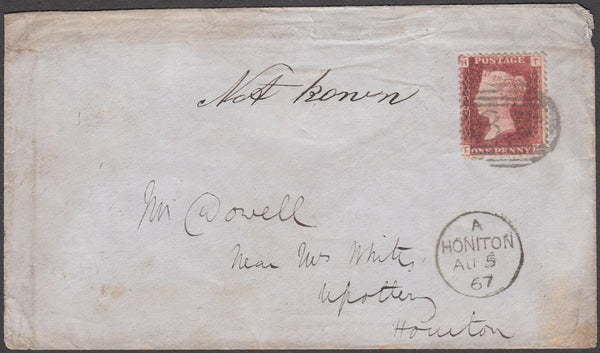 POSTAGE
ONE PENNY
Not konen
Mr Dowell
Near Mrs White
Upottery
Honiton
A
HONITON
AU 5
67